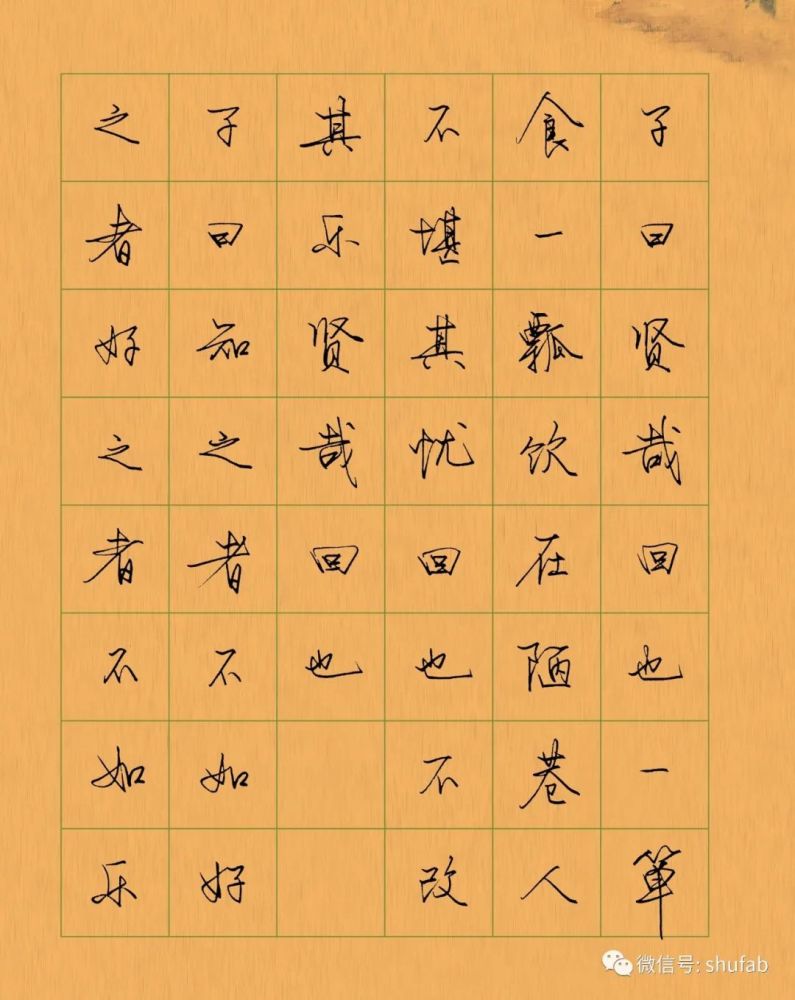 子曰贤哉回也一箪
食一瓢饮在陋巷人
不堪其忧回也不改
其乐贤哉回也
子曰知之者不如好
之者好之者不如乐
微信号: shufab